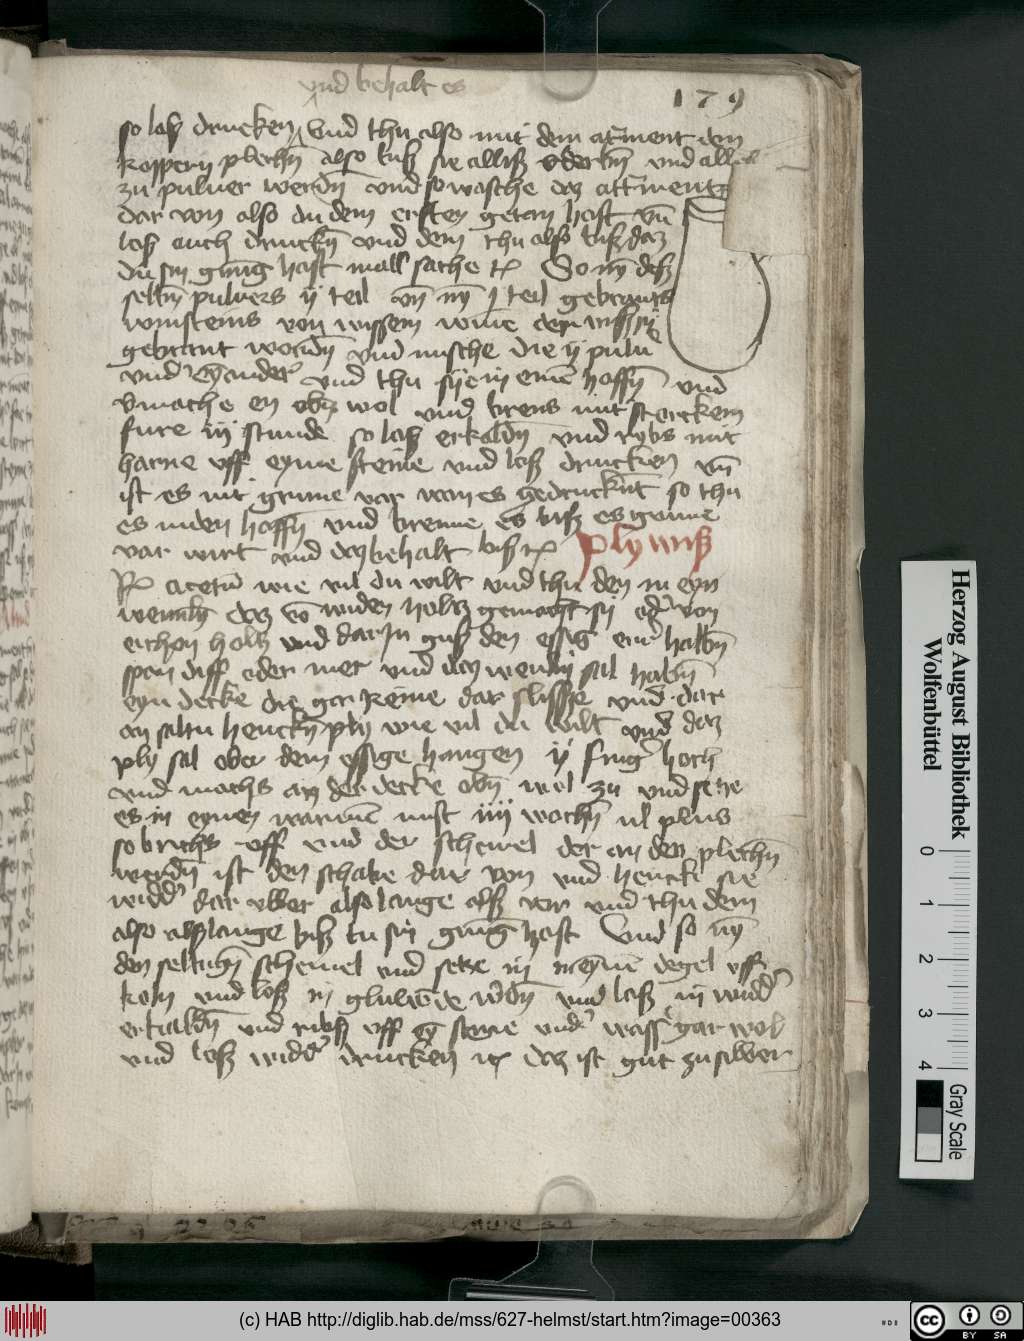 vnd behalt es
179
so laß drucken Vnd thu also mit dem atrment dem
koppern plechn also biß sie alliß vnd alles
zu puluer werdn vnd so wasche daz attrment
dar von also du dem ersten getan hast vn
laß auch druckn vnd dem thu also biß daz
du sin gnug hast mall sache So nym deß
selbn puluers ij teil vn nym j teil gebrants
winsteins von wissem wine
gebrant wordn vnd mische die ij puluer
vnd eynander vnd thu sije in eine hoffn vnd
vermache en obn wol vnd brens mit starckem
fure iij stunde so laß erkaldn vnd rybs mit
harne vff eyme steine vnd laß drucken vn
ist es nit grune var wan es gedrucknt so thu
es in den hoffn vnd brenne es biß es grune
var wirt vnd daz behalt biß
Ply wiß
acetum wie vil du wilt vnd thu den in eyn
daz von widen holtz gemacht sij oder von
eichen holtz vnd darin guß den essig einer halbn
span diff oder mer vnd daz sal habn
eyn decke die gar keine dar slisse vnd dar
an saltu henckn ply wie vil du wilt vnd daz
ply sal ober dem essige hangen ij finger hoch
vnd machs an der decke obn wol zu vnd setze
es in eynen warmen mist iiij wochn vl plus
so brichs vff vnd der schewel der an den plechn
werdn ist den schabe dar von vnd henck sie
widder dar vber also lange alß vor vnd thu dem
also alß lange biß tu sin gnug hast Vnd so nym
den selbign schewel vnd setze in in eynen degel vff
koln vnd laß in gluwede werdn vnd laß in widder
erkaldn vnd ribß vff eyn steine vnder wasser gar wol
vnd laß widder drucken daz ist gut zu silber
Herzog August Bibliothek
Wolfenbüttel
0
1
2
3
4
Gray Scale
(c) HAB http://diglib.hab.de/mss/627-helmst/start.htm?image=00363
cc
BY SA